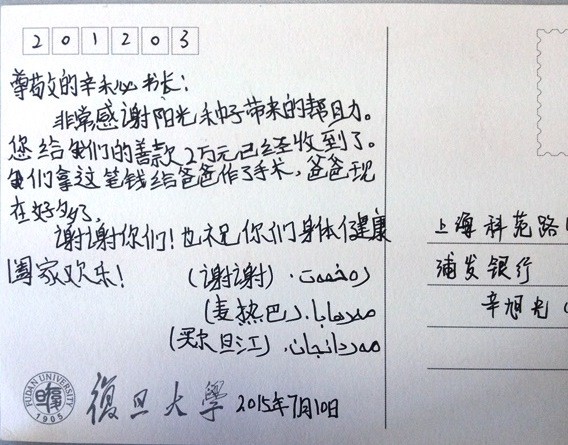 201203
尊敬的辛秘书长：
非常感谢阳光种子带来的帮助。
您给我们的善款2万元已经收到了。
我们拿这笔钱给爸爸作了手术，爸爸现
在好多了。
谢谢你们！也祝你们身体健康
阖家欢乐！ (谢谢) رەخمەت.
(麦热巴) مەرھابا.
(买尔旦江) مەردانجان.
FUDAN UNIVERSITY 1905
復旦大學 2015年7月10日
上海科苑路
浦发银行
辛旭光